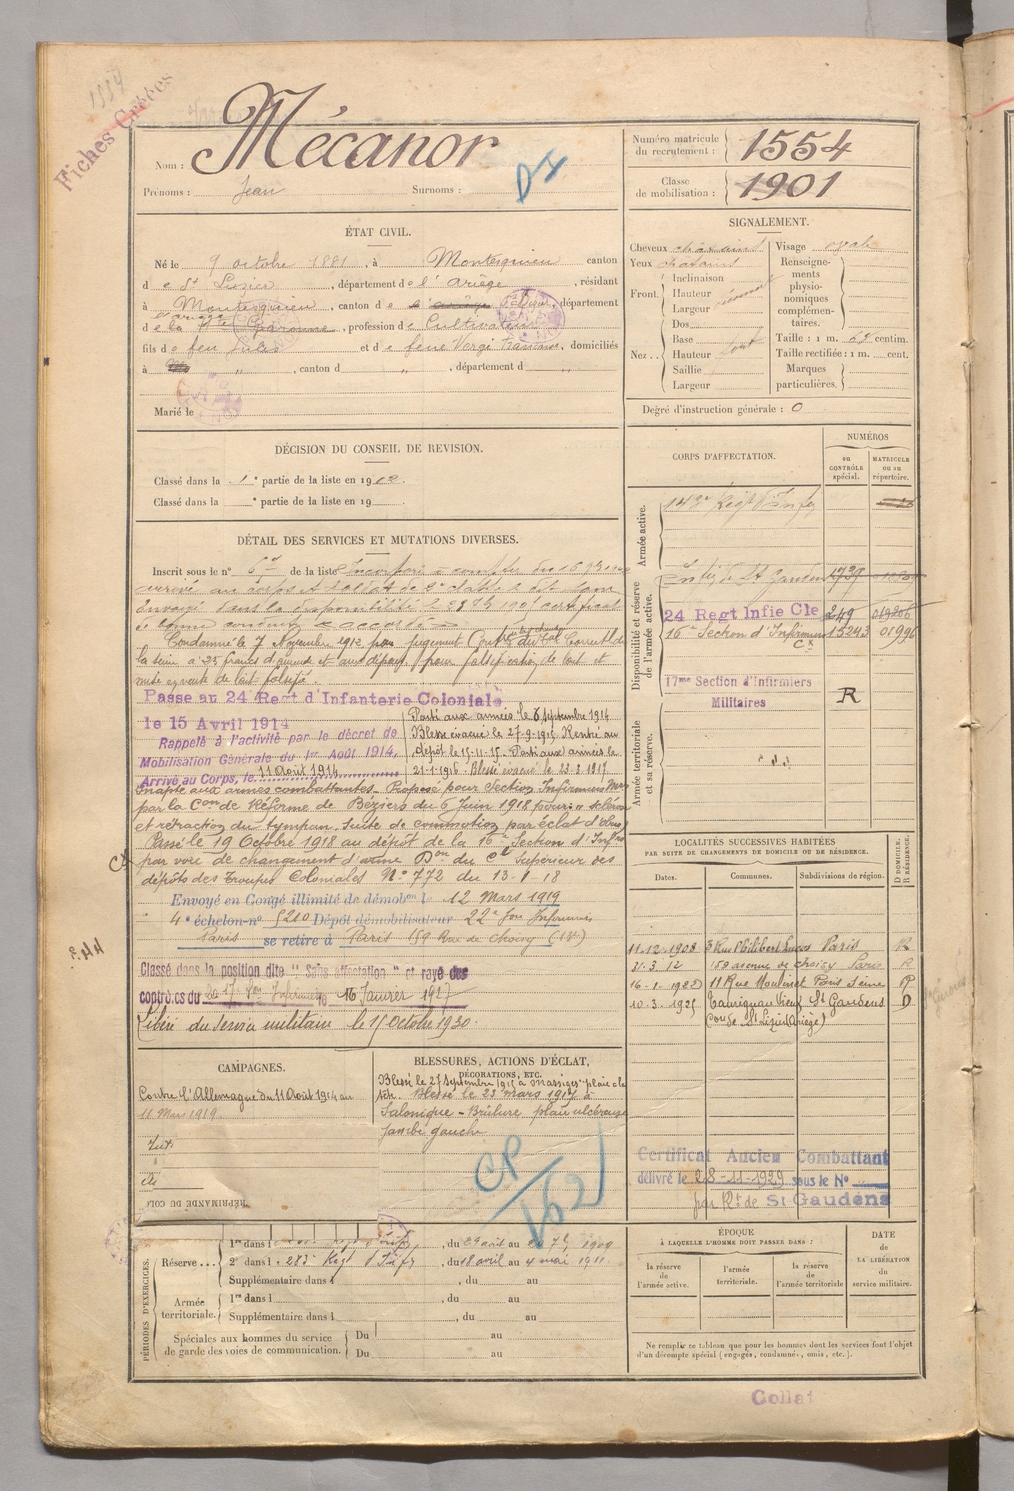 1554
Fiches Créées
Nom : Mécanor
Prénoms : Jean Surnoms :
Numéro matricule du recrutement : 1554
Classe de mobilisation : 1901
ÉTAT CIVIL.
Né le 9 octobre 1881, à Montesquieu canton
de St Lizier, département de l'Ariège, résidant
à Montesquieu, canton de St Lizier, département
de la Hte Garonne, profession de Cultivateur
Ariège
fils de feu et de feue Vergé Françoise, domiciliés
à " , canton d " , département d "
Marié le
SIGNALEMENT.
Cheveux châtains
Yeux châtains
Front. Inclinaison
Hauteur
Largeur
Nez .. Dos
Base
Hauteur fort
Saillie
Largeur
Visage ovale
Renseignements physionomiques complémentaires.
Taille : 1 m. centim.
Taille rectifiée : 1 m. cent.
Marques particulières.
Degré d'instruction générale : 0
DÉCISION DU CONSEIL DE REVISION.
Classé dans la 1e partie de la liste en 1902.
Classé dans la e partie de la liste en 19
CORPS D'AFFECTATION.
NUMÉROS
au CONTRÔLE spécial.
MATRICULE ou au répertoire.
Armée active.
143e Régt d'Infie
Disponibilité et réserve de l'armée active.
Infie St Gaudens 1739
24 Regt Infie Cle 249
16e Section d'Infirmiers 15243 01996
17me Section d'Infirmiers
Militaires R
Armée territoriale et sa réserve.
DÉTAIL DES SERVICES ET MUTATIONS DIVERSES.
Inscrit sous le n° de la liste Incorporé à compter du 16
arrivé au corps et soldat de 2e classe le dit jour
Envoyé dans la disponibilité le certificat
de bonne conduite accordé
Condamné le 7 Novembre 1912 par jugement du Tal Correctl de
la Seine à 25 francs d'amende et aux dépens pour falsification de lait et
mise en vente de lait falsifié.
Passé au 24 Regt d'Infanterie Coloniale
le 15 Avril 1914
Rappelé à l'activité par le décret de
Mobilisation Générale du 1er Août 1914,
Arrivé au Corps, le 11 Août 1914
Parti aux armées le 6 septembre 1914
Blessé évacué le 27-9-15. Rentré au
dépôt le 15-11-15. Parti aux armées le
21-1-1916. Blessé évacué le 23-3-1917
Inapte aux armes combattantes. Proposé pour Section Infirmiers Mres
par la Con de Réforme de Béziers du 6 Juin 1918 pour : "sclérose
et rétraction du tympan, suite de commotion par éclat d'obus"
Passé le 19 Octobre 1918 au dépôt de la 16e Section d'Infres
par voie de changement d'arme Don du Ct Supérieur des
dépôts des Troupes Coloniales N° 772 du 13-8-18
Envoyé en Congé illimité de démobon le 12 Mars 1919
4e échelon-n° 5210 Dépôt démobilisateur 22e Son Infirmiers
Paris se retire à Paris 159 Rue de Choisy (13e)
Classé dans la position dite "Sans affectation" et rayé des
contrôles du 16 Janvier 1927
Libéré du service militaire le 15 Octobre 1930.
LOCALITÉS SUCCESSIVES HABITÉES
PAR SUITE DE CHANGEMENTS DE DOMICILE OU DE RÉSIDENCE.
Dates. Communes. Subdivisions de région. D DOMICILE. R RÉSIDENCE.
11-12-1908 3 Rue Philibert Lucas Paris R
31-3-12 159 avenue de Choisy Paris R
16-1-1922 11 Rue Moulinet Paris Seine R
10-3-1925 Taurignan Vieux St Gaudens D
(con de St Lizier Ariège)
CAMPAGNES.
Contre l'Allemagne du 11 Août 1914 au
11 Mars 1919
BLESSURES, ACTIONS D'ÉCLAT,
DÉCORATIONS, ETC.
Blessé le 27 septembre 1915 à Massiges plaie à la
tête. Blessé le 23 mars 1917 à
Salonique - Brûlure, plaie ulcéreuse
jambe gauche.
CP
162
RÉPRIMANDE DU COLL
Certificat Ancien Combattant
délivré le 28-11-1929 sous le N°
par Rt de St Gaudens
PÉRIODES D'EXERCICES.
Réserve ...
1re dans l , du 29 août au 1909
2e dans l 283e Régt d'Infie, du 18 avril au 4 mai 1911
Supplémentaire dans l , du au
Armée territoriale.
1re dans l , du au
Supplémentaire dans l , du au
Spéciales aux hommes du service de garde des voies de communication.
Du au
Du au
ÉPOQUE
À LAQUELLE L'HOMME DOIT PASSER DANS :
la réserve de l'armée active.
l'armée territoriale.
la réserve de l'armée territoriale
DATE de LA LIBÉRATION du service militaire.
Ne remplir ce tableau que pour les hommes dont les services font l'objet
d'un décompte spécial (engagés, condamnés, omis, etc.).
Collat